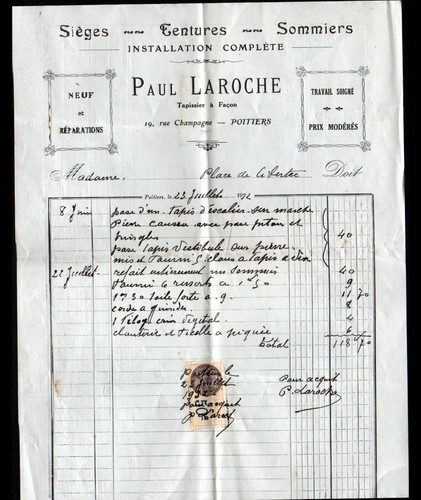 Sièges ~~ Tentures ~~ Sommiers
INSTALLATION COMPLÈTE
NEUF
et
RÉPARATIONS
PAUL LAROCHE
Tapissier à Façon
19, rue Champagne — POITIERS
TRAVAIL SOIGNÉ
PRIX MODÉRÉS
Madame. Place de liberté Doit
Poitiers, le 23 Juillet 192
8 Juin pose d'un Tapis d'escalier sur marche
Pierre avec pose pitons et
tringles 40
pose Tapis Vestibule sur pierre
mis et Fourni 5 clous a Tapis a vis
22 Juillet refait entierement un Sommier 40
Fourni 6 ressorts a 1 50 9
1m30 Toile forte a 9 11 70
corde a guinder
1 Kilog crin Végétal 4
et ficelle a piquer 6
Total 118 70
Poitiers le
23 Juillet
192
Pour acquit
P. Laroche
Pour acquit
P. Laroche